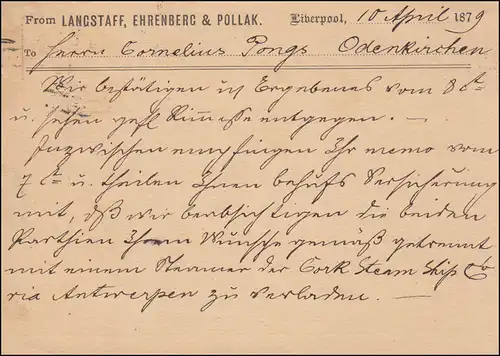 From LANGSTAFF, EHRENBERG & POLLAK. Liverpool, 10 April 1879
To Herrn Cornelius Pongs Odenkirchen
Wir bestätigen u/ Ergebenes vom 8 ct
u. sehen gefl Rimesse entgegen. —
Inzwischen empfingen Ihr memo vom
7 ct u. theilen Ihnen behufs Versicherung
mit, daß wir beabsichtigen die beiden
Parthien Ihrem Wunsche gemäß getrennt
mit einem Steamer der Cork Steam Ship Co
via Antwerpen zu verladen. —